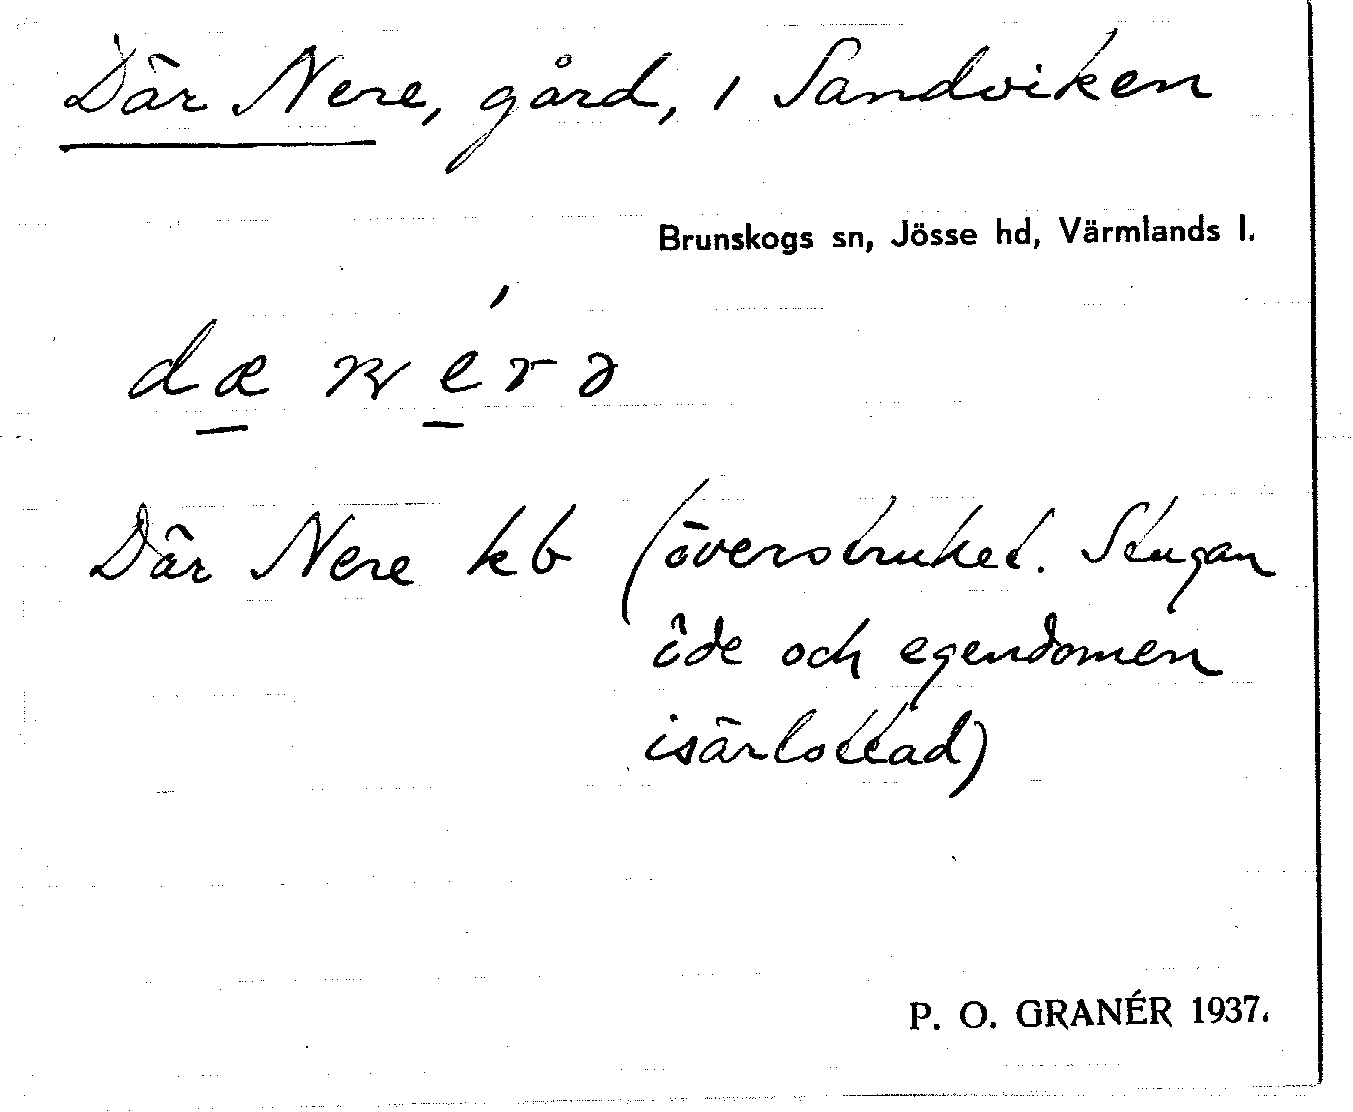 Där Nere, gård, i Sandviken
Brunskogs sn, Jösse hd, Värmlands l.
dæ nérə
Där Nere kb (överstruket. Stugan
öde och egendomen
isärlottad)
P. O. GRANÉR 1937.